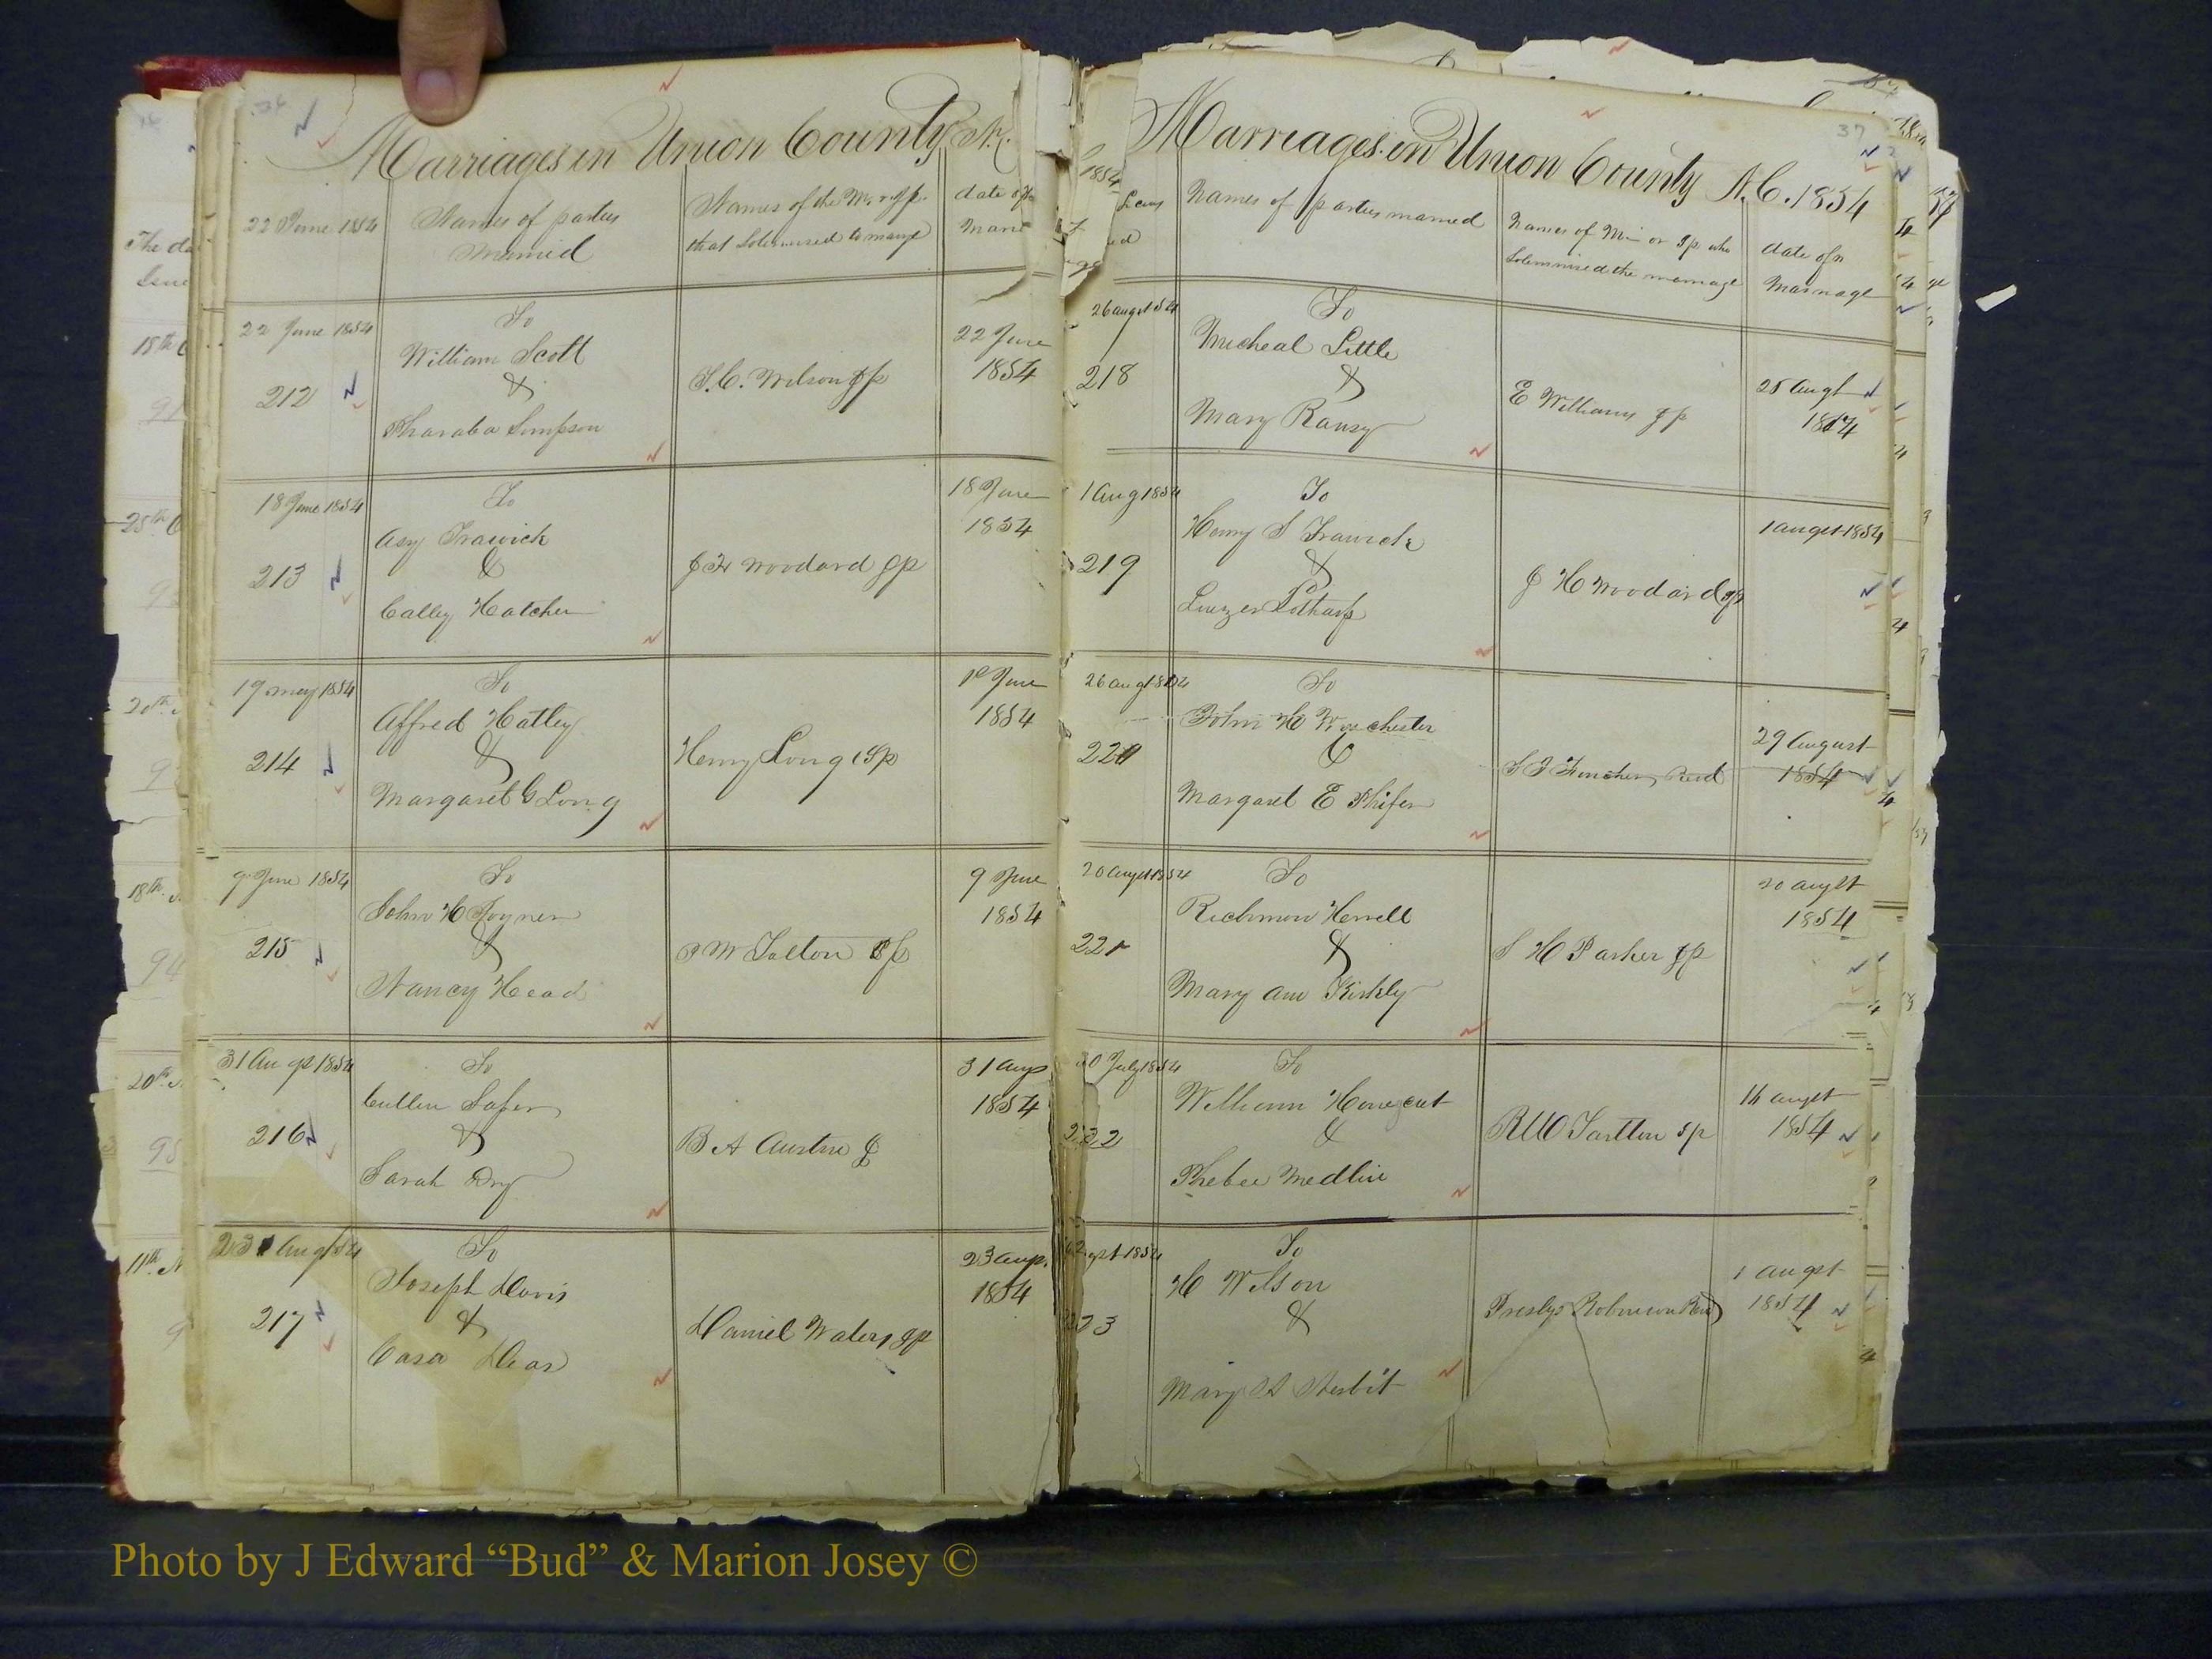 36
Marriages in Union County N.C.
1854
22 June 1854
Names of parties
married
Names of the Mr or Jp.
that Solemnised the marrige
date of
22 June 1854
212
To
William Scott
&
Pharaba Simpson
S.C. Wilson Jp
22 June
1854
18 June 1854
213
To
Asy Trawick
&
Calley Hatcher
J H Woodard Jp
18 June
1854
19 may 1854
214
To
Alfred Hatley
&
Margaret G Long
Henry Long Jp
1st June
1854
9 June 1854
215
To
John H Joyner
&
Nancy Head
9 June
1854
31 Augt 1854
216
To
Cullen
&
Sarah Dry
B A Austin J
31 Aug
1854
23 Augt 54
217
To
Joseph Davis
&
Casa Deas
Daniel Waters Jp
23 Aug.
1854
37
Marriages in Union County N.C. 1854
Names of parties married
Names of Min or Jp who
Solemnised the marriage
date of
Marriage
26 augst 54
218
To
Micheal Little
&
Mary Ransy
E Williams Jp
25 Augt
1854
1 Aug 1854
219
To
Henry S Trawick
&
J H Woodard Jp
1 augst 1854
26 augt 1854
220
To
John H Winchester
&
Margaret E Phifer
29 August
1854
20 augst 1854
221
To
Richmon Herrell
&
Mary Ann Kirkly
S H Parker Jp
20 augst
1854
30 July 1854
222
To
William Honeycut
&
Phebee Medlin
16 augst
1854
augst 1854
223
To
H Wilson
&
Mary Nesbit
Preslys Robinson Revd
1 augst
1854
Photo by J Edward “Bud” & Marion Josey ©